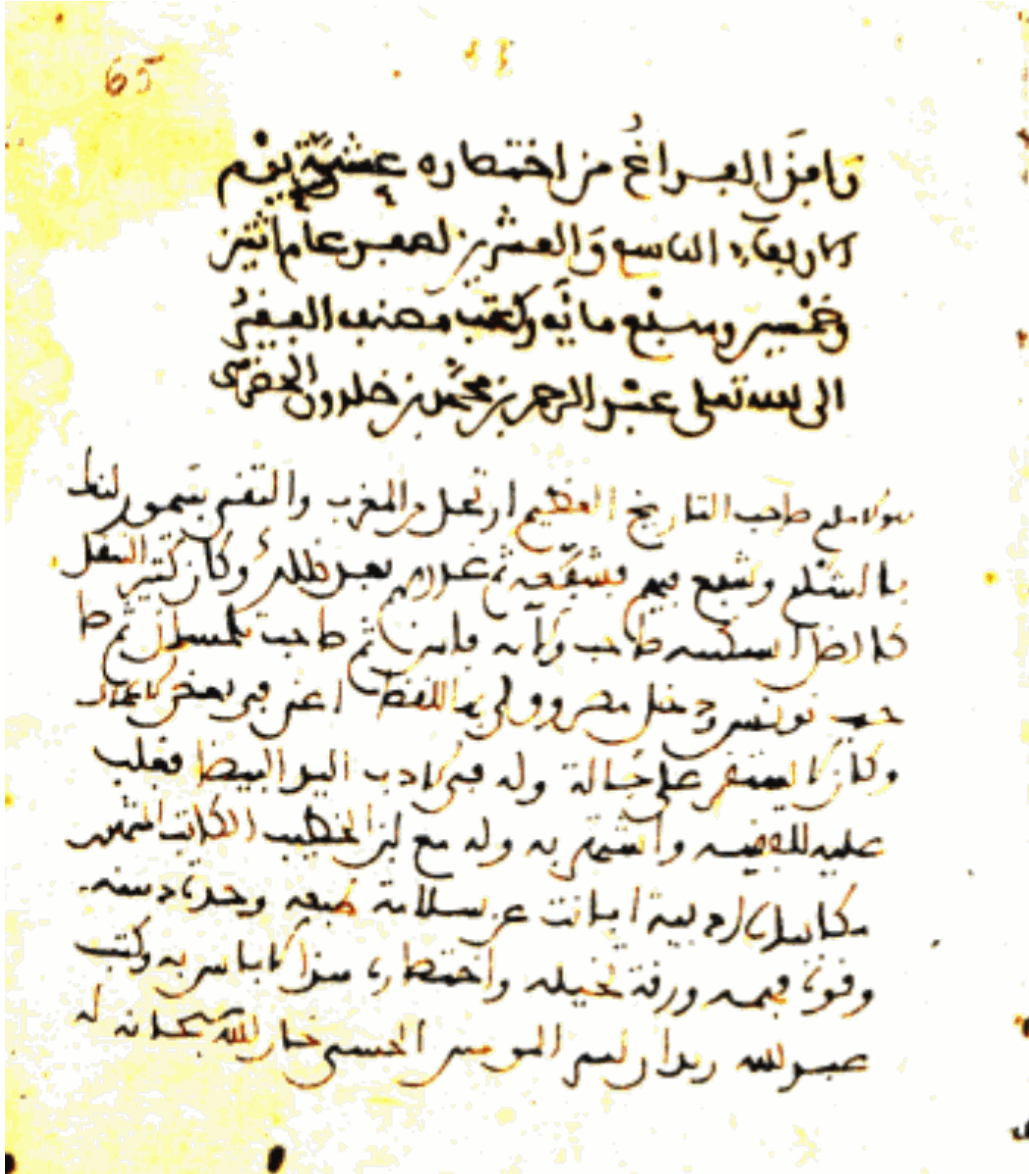 65
وافق الفراغ من اختصاره عشية يوم
الاربعاء التاسع والعشرين لصفر عام اثنين
وخمسين وسبع مائة وكتب مصنفه الفقير
الى الله تعلى عبد الرحمن بن محمد بن خلدون الحضرمي
صاحب التاريخ العظيم ارتحل من المغرب والتقى بتيمور لنك
بالشام وشفع فيهم فشفعه ثم غدرهم بعد ذلك وكان كثير التنقل
صاحب فاس ثم صاحب تلمسان ثم صا
حب تونس ودخل مصر وولي بها القضا اعني في بعض
وكان لا يستقر على حالة وله في الادب اليد البيضا فغلب
عليه واشتهر به وله مع ابن الخطيب الكاتب الشهير
ادبية ابانت عن سلامة طبعه وحدة ذهنه
وقوة فهمه ورقة تخيله واختصاره هذا لا باس به وكتب
عبد الله الحسني خار الله سبحانه له